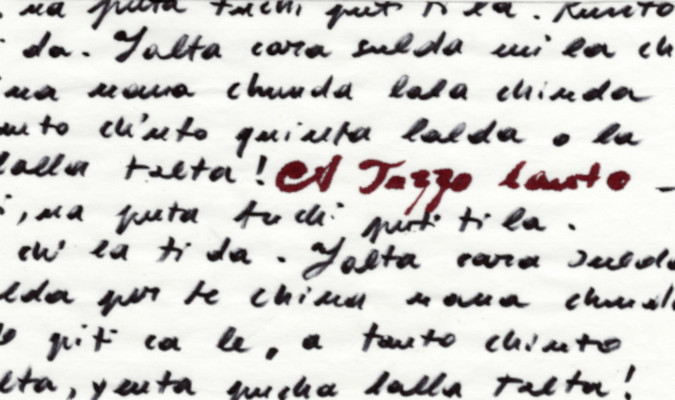 na puta tuchi puti ti la. Kunto
da. Jalta cara sulda mi la ch
na mana chunda lala chinda
nto ch'nto quinta lalda o la
lalla talta! A Tazzo lanto –
i, na puta tuchi puti ti la.
chi la ti da. Jalta cara sulda
lda por te china mana chund
piti ca le, a tanto chinto
lta, yenta pucha lalla talta!